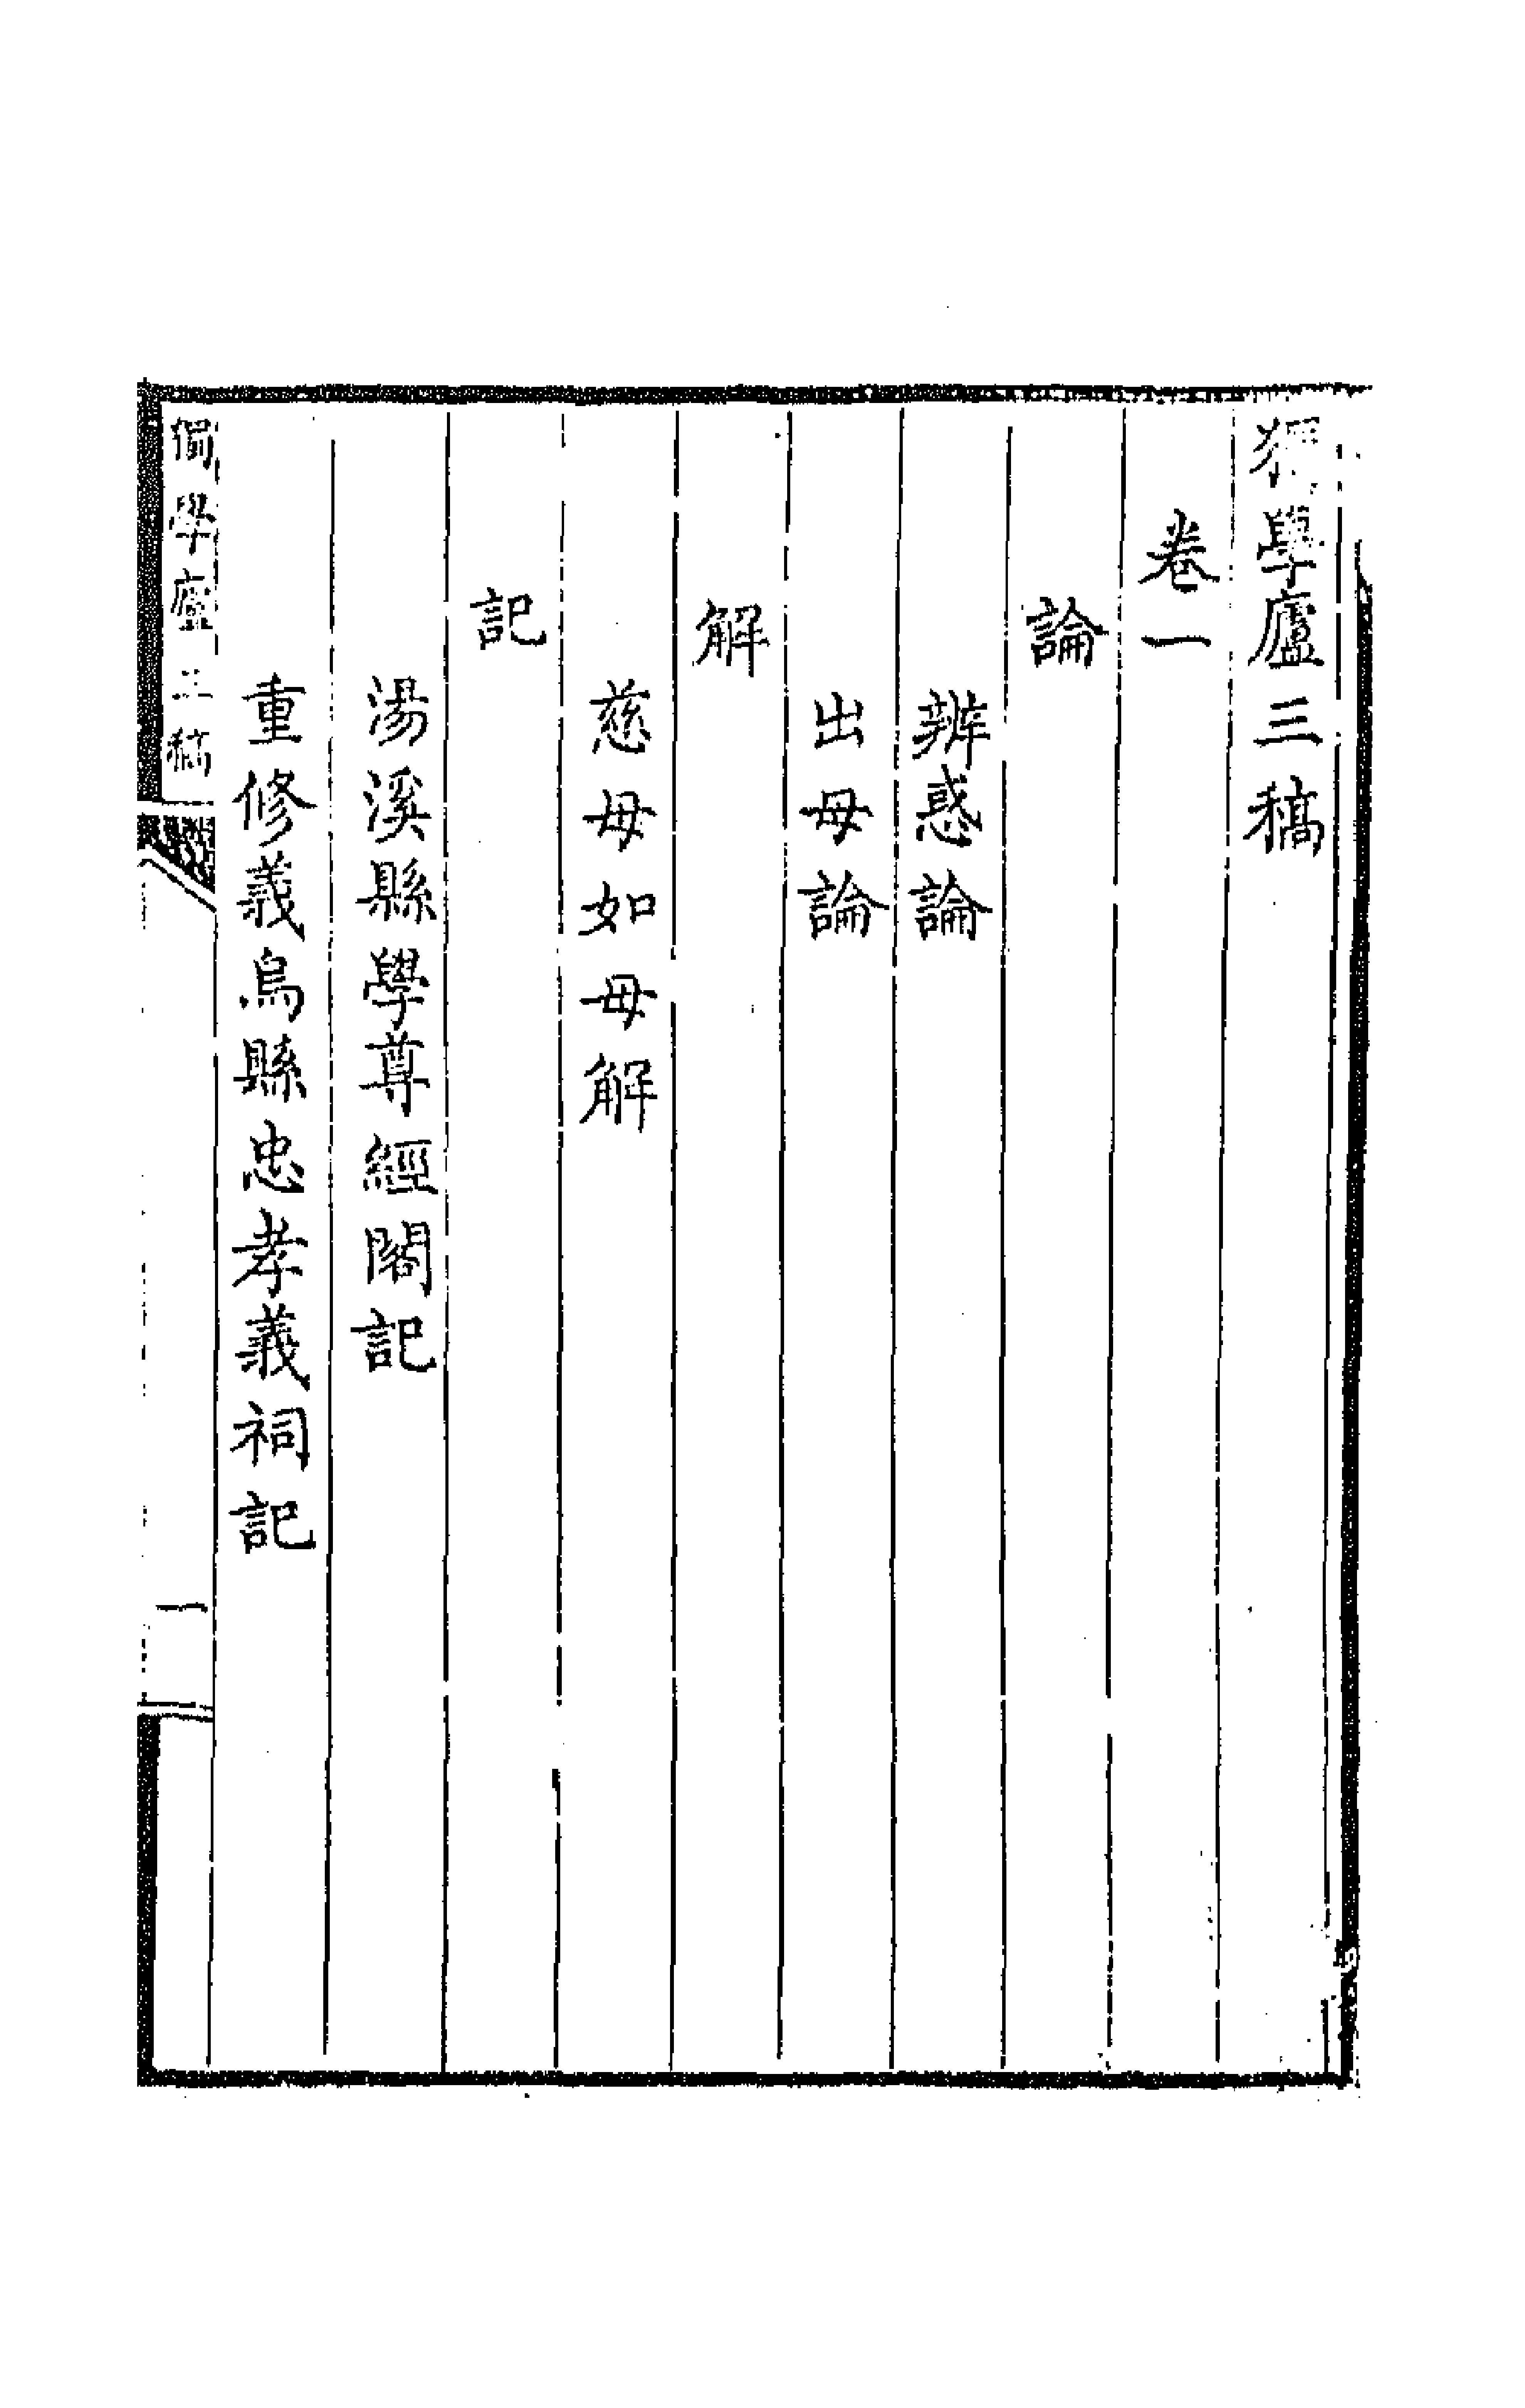 獨學廬三稿
卷一
論
辨惑論
出母論
解
慈母如母解
記
湯溪縣學尊經閣記
重修義烏縣忠孝義祠記
獨學廬三稿
一